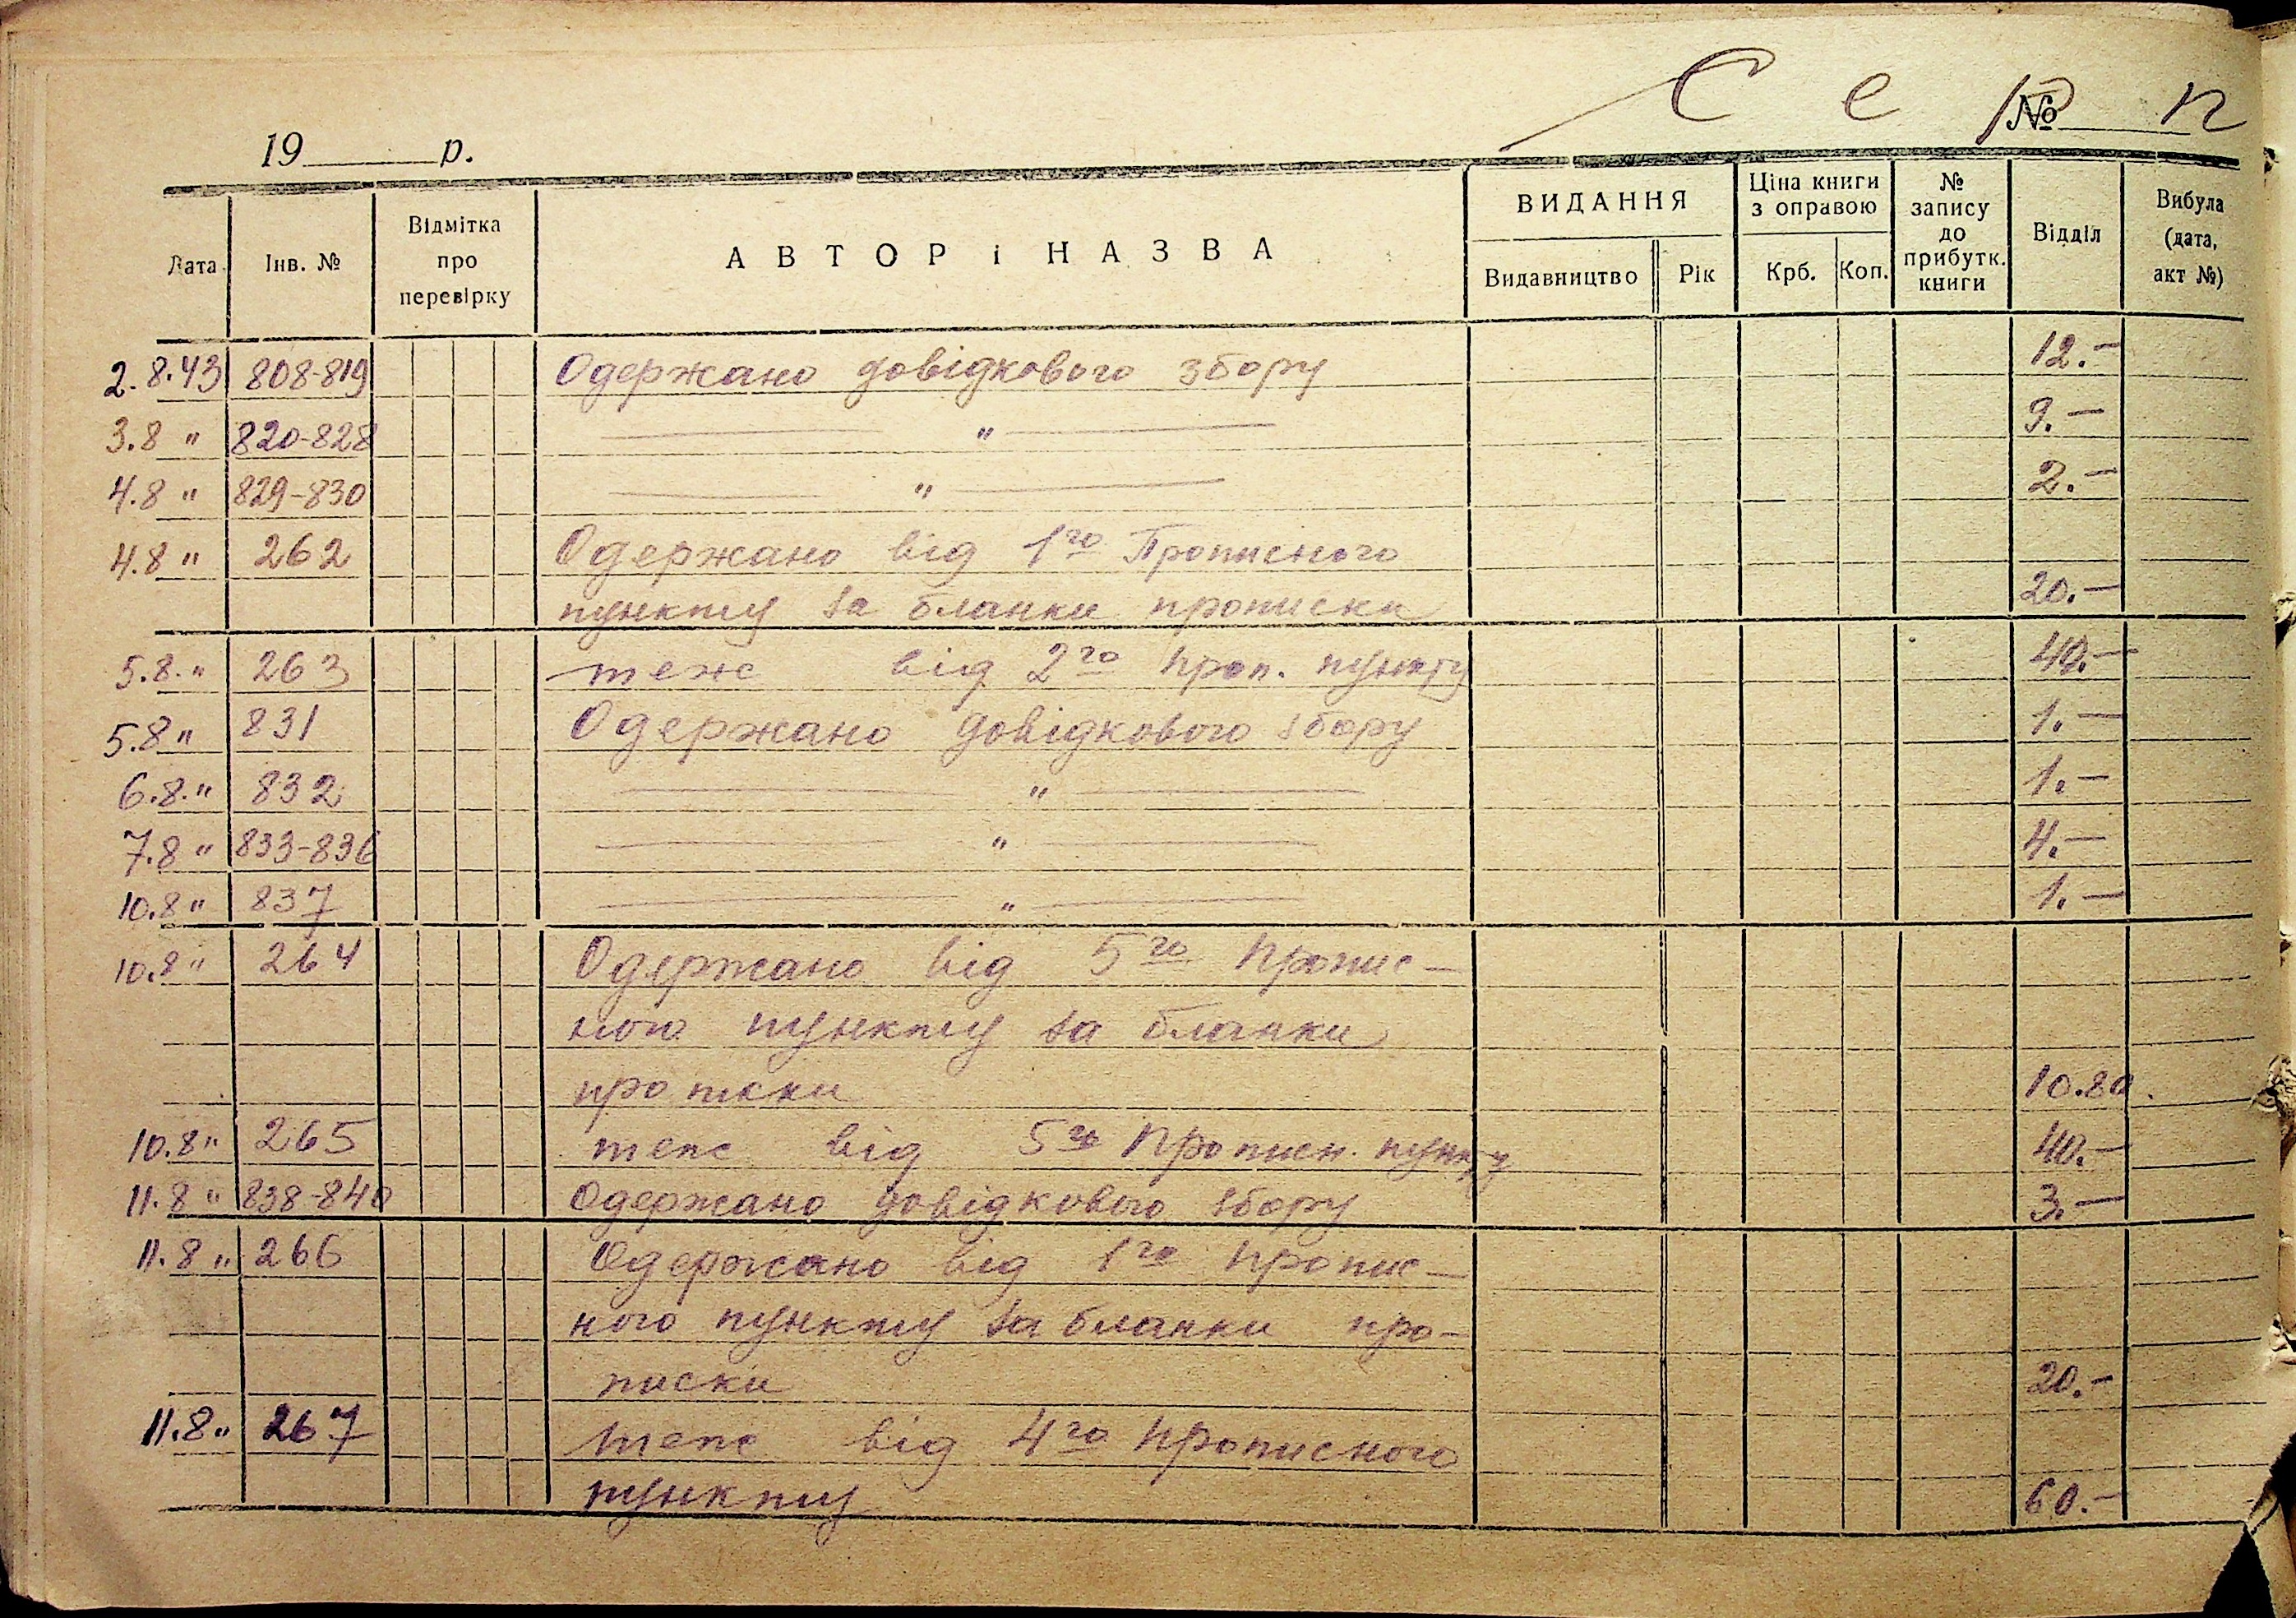 С е р п
19____р. №
Дата Інв. № Відмітка про перевірку АВТОР і НАЗВА ВИДАННЯ Видавництво Рік Ціна книги з оправою Крб. Коп. № запису до прибутк. книги Відділ Вибула (дата, акт №)
2.8.43 808-819 Одержано довідкового збору 12.—
3.8 " 820-828 — " — 9.—
4.8 " 829-830 — " — 2.—
4.8 " 262 Одержано від 1го Прописного
пункту за бланки прописки 20.—
5.8." 263 теж від 2го проп. пункту 40.—
5.8 " 831 Одержано довідкового збору 1.—
6.8." 832 — " — 1.—
7.8 " 833-836 — " — 4.—
10.8 " 837 — " — 1.—
10.8 " 264 Одержано від 5го Пропис-
ного пункту за бланки
прописки 10.80.
10.8 " 265 теж від 5го Прописн. пункту 40.—
11.8 " 838-840 Одержано довідкового збору 3.—
11.8 " 266 Одержано від 1го Пропис-
ного пункту за бланки про-
писки 20.—
11.8." 267 теж від 4го Прописного
пункту 60.—